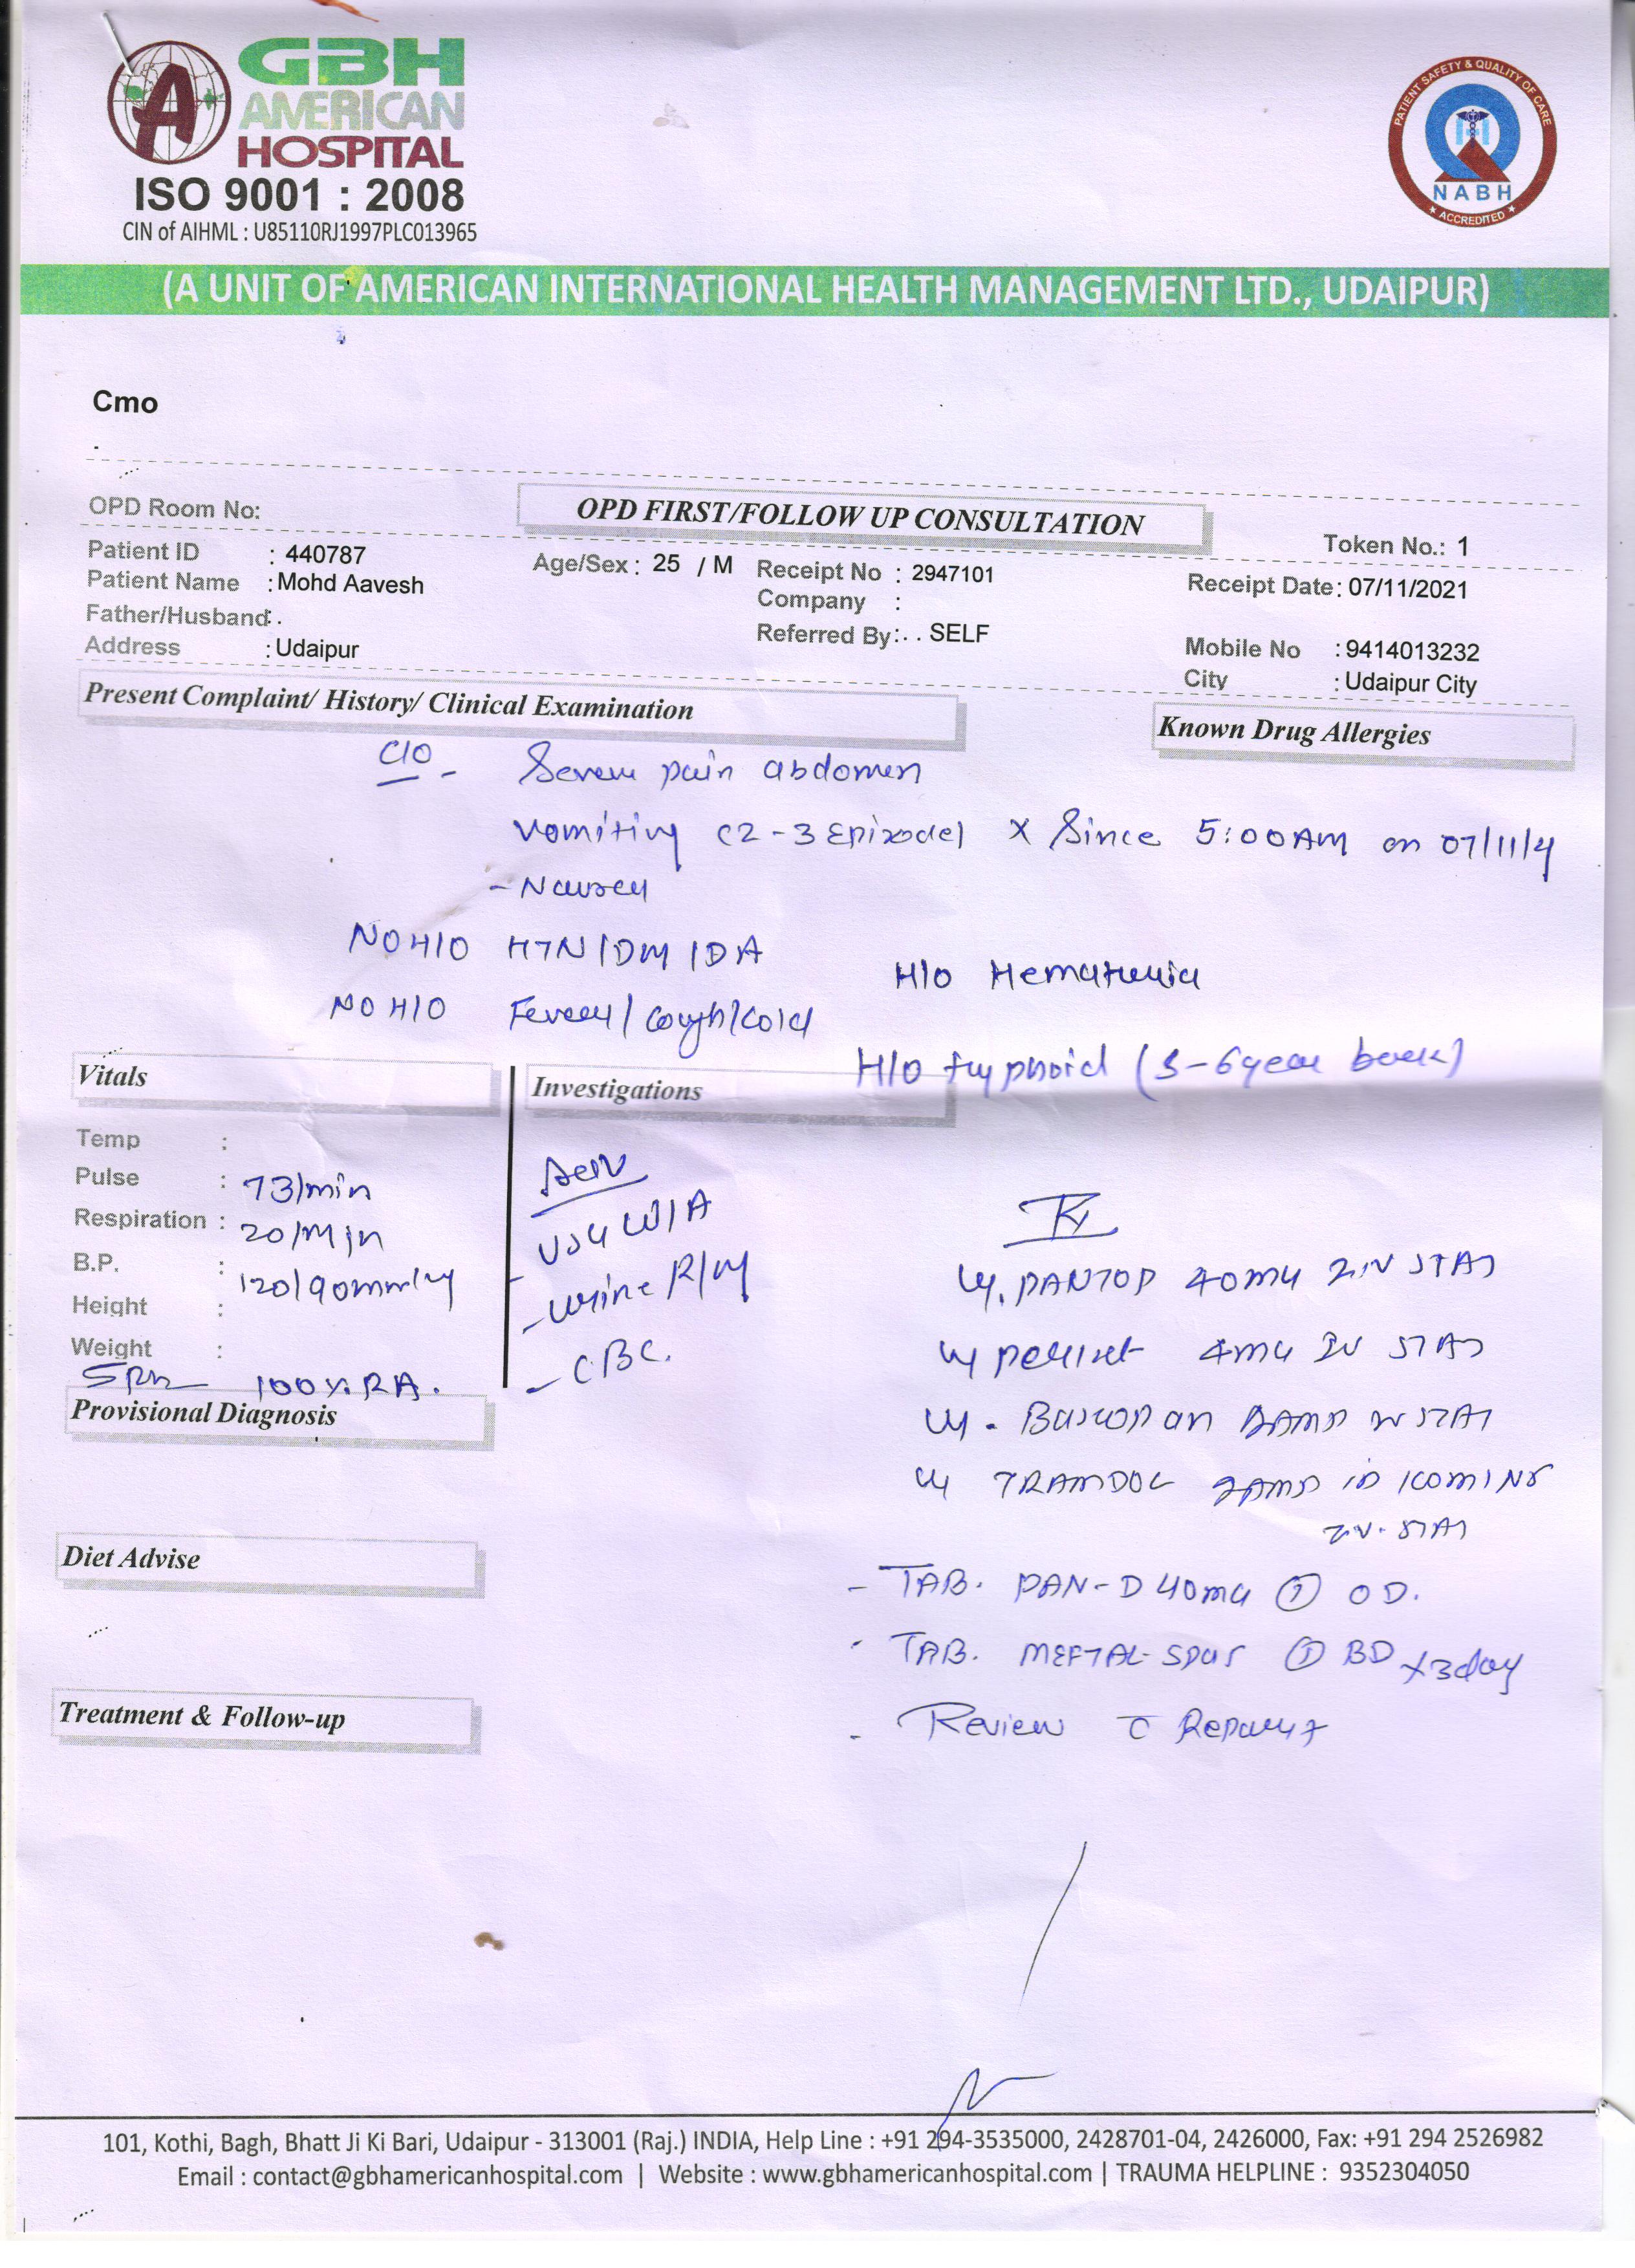 GBH
AMERICAN
HOSPITAL
ISO 9001 : 2008
CIN of AIHML : U85110RJ1997PLC013965
PATIENT SAFETY & QUALITY OF CARE
NABH
ACCREDITED
(A UNIT OF AMERICAN INTERNATIONAL HEALTH MANAGEMENT LTD., UDAIPUR)
Cmo
OPD Room No:
OPD FIRST/FOLLOW UP CONSULTATION
Token No.: 1
Patient ID : 440787
Age/Sex : 25 / M
Receipt No : 2947101
Receipt Date: 07/11/2021
Patient Name : Mohd Aavesh
Company :
Father/Husband: .
Referred By: . . SELF
Mobile No : 9414013232
Address : Udaipur
City : Udaipur City
Present Complaint/ History/ Clinical Examination
Known Drug Allergies
C/O - Severe pain abdomen
vomiting (2-3 Episode) x Since 5:00AM on 07/11/21
- Nausea
NO H/O HTN/DM/DA
H/o Hematuria
NO H/O Fever/cough/cold
H/O typhoid (5-6 year back)
Vitals
Investigations
Temp :
Pulse : 73/min
Respiration : 20/min
B.P. : 120/90mmHg
Height :
Weight :
SPO2 100% RA.
Adv
- USG W/A
- urine R/M
- CBC.
Rx
Inj. PANTOP 40mg IV STAT
Inj perinet 4mg IV STAT
Inj. Buscopan AMP IV STAT
Inj TRAMDOL AMP in 100ml NS
IV. STAT
- TAB. PAN-D 40mg ① OD.
- TAB. MEFTAL-SPAS ① BD x3day
- Review c̄ Report
Provisional Diagnosis
Diet Advise
Treatment & Follow-up
101, Kothi, Bagh, Bhatt Ji Ki Bari, Udaipur - 313001 (Raj.) INDIA, Help Line : +91 294-3535000, 2428701-04, 2426000, Fax: +91 294 2526982
Email : contact@gbhamericanhospital.com | Website : www.gbhamericanhospital.com | TRAUMA HELPLINE : 9352304050